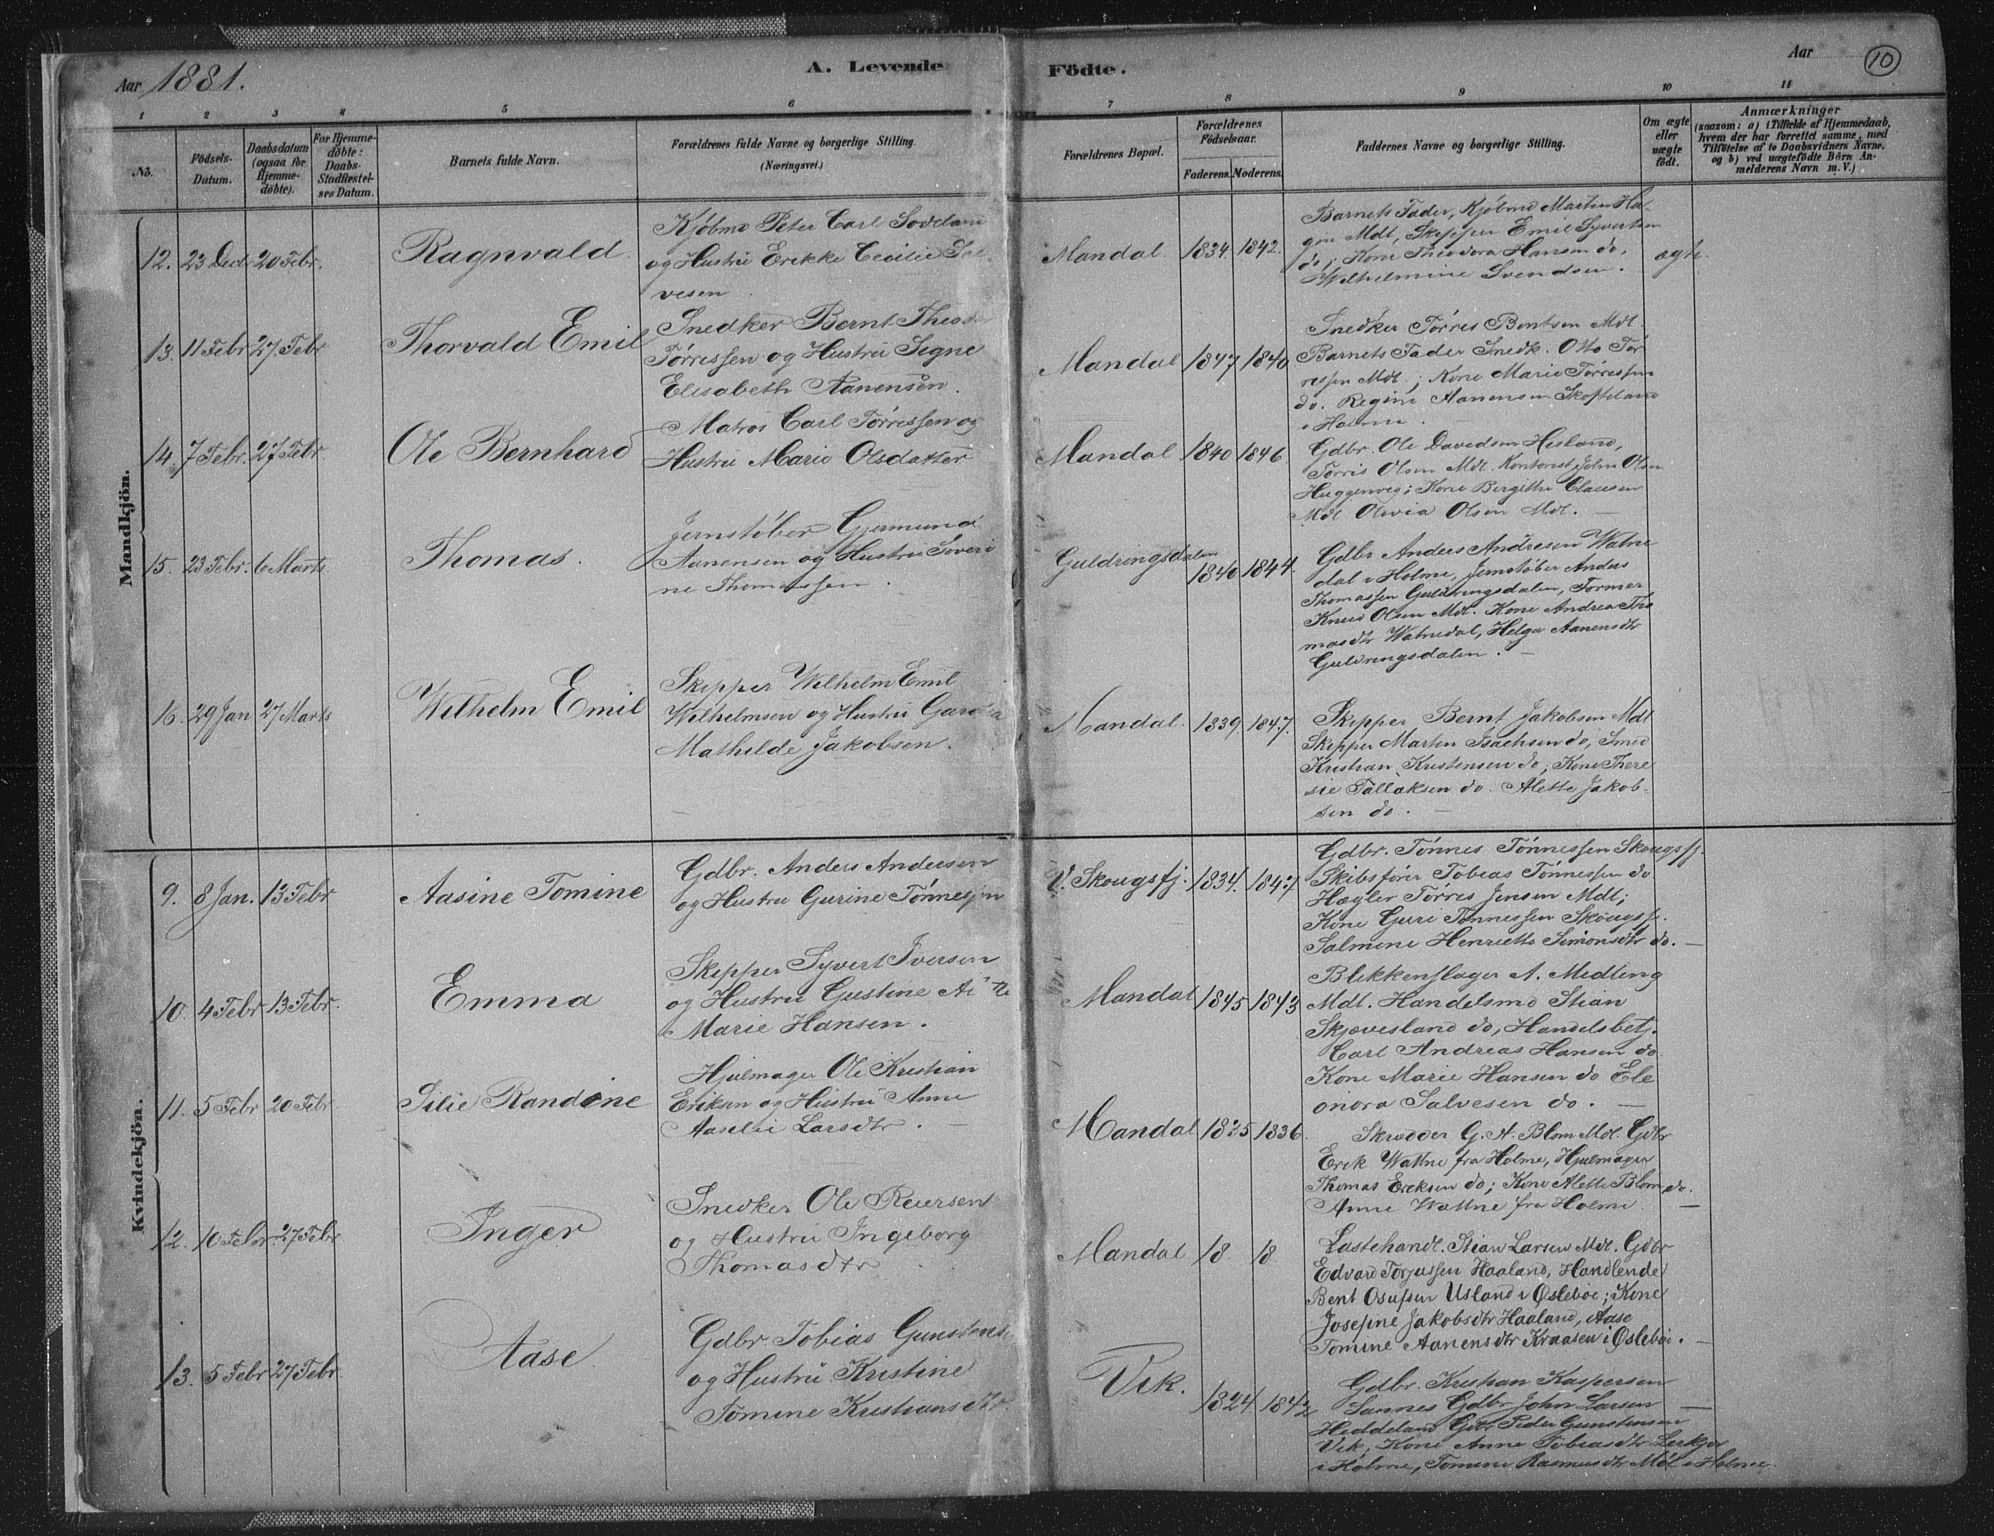 Aar 1881.
A. Levende
Födte.
Aar
10
1 2 3 4 5 6 7 8 9 10 11
No.
Födsels-Datum.
Daabsdatum (ogsaa for Hjemme-döbte).
For Hjemme-döbte: Daabs-Stadfæstelses Datum.
Barnets fulde Navn.
Forældrenes fulde Navne og borgerlige Stilling.
(Næringsvei.)
Forældrenes Bopæl.
Forældrenes Födselsaar.
Faderens. Moderens.
Faddernes Navne og borgerlige Stilling.
Om ægte eller uægte födt.
Anmærkninger
(saasom: a) i Tilfælde af Hjemmedaab,
hvem der har forrettet samme, med
Tilföielse af to Daabsvidners Navne.
og b) ved uægtefödte Börn An-
melderens Navn m. V.)
Mandkjön.
12. 23 Dec 20 Febr. Ragnvald
Kjøbmd Peter Carl
og Hustru Erikke Cecilie Sal
vesen
Mandal 1834. 1842.
Barnets Fader, Kjøbmd Marten Ha-
gen Mdl, Skipper Emil Syvertsen
do; Kone Theodora Hansen do,
Wilhelmine Svendsen.
ægte.
13. 11 Febr 27 Febr Thorvald Emil
Snedker Bernt Theodor
Tørressen og Hustru Signe
Elisabeth Aanensen.
Mandal 1847 1840
Snedker Tørres Bentsen Mdl.
Barnets Fader Snedk. Otto Tør-
ressen Mdl.; Kone Marie Tørressen
do. Regine Aanensen Skofteland
i Holme.
14. 7 Febr. 27 Febr. Ole Bernhard
Matros Carl Tørressen og
Hustru Marie Olsdatter
Mandal 1840 1846.
Gdbr. Ole Davidsen Hesland,
Tørris Olsen Mdl. Kontorist John Olsen
Huggenveg; Kone Bergithe Clausen
Mdl Olevia Olsen Mdl. —
15. 23 Febr. 6 Marts Thomas.
Jernstøber Gjermund
Aanensen og Hustru Severi
ne Thomassen.
Guldringsdalen 1840 1844.
Gdbr Anders Andresen Watne
dal i Holme, Jernstøber Anders
Thomassen Guldringsdalen, Former
Knud Olsen Mdl. Kone Andrea Tho
masdtr Watnedal, Helga Aanensdtr
Guldringsdalen. —
16. 29 Jan 27 Marts Wilhelm Emil
Skipper Wilhelm Emil
Wilhelmsen og Hustru
Mathilde Jakobsen.
Mandal. 1839. 1847.
Skipper Bernt Jakobsen Mdl
Skipper Marten Isachsen do, Smed
Kristian Kristensen do; Kone There
sie Tallaksen do. Alette Jakob-
sen do. —
Kvindekjön.
9. 8 Jan. 13 Febr Aasine Tomine
Gdbr. Anders Andersen
og Hustru Gurine Tønnessen
V. Skougsfj. 1834. 1847
Gdbr. Tønnes Tønnessen Skougsfj.
Skibsfører Tobias Tønnessen do
Hægler Tørres Jensen Mdl;
Kone Guri Tønnessen Skougsf.
Salmine Henriette Simonsdtr do. —
10. 4 Febr 13 Febr. Emma
Skipper Syvert Iversen
og Hustru Gustine
Marie Hansen.
Mandal 1845 1843
Blikkenslager A. Medling
Mdl. Handelsmd Stian
Skjævesland do, Handelsbetj.
Carl Andreas Hansen do
Kone Marie Hansen do Ele
onora Salvesen do. —
11. 5 Febr 20 Febr. Silie Randine
Hjulmager Ole Kristian
Eriksen og Hustru Anne
Aaselie Larsdtr. —
Mandal 1825 1836.
Skrædder G. A. Blom Mdl. Gdbr
Erik Wattne fra Holme, Hjulmager
Thomas Eriksen do; Kone Alette Blom do.
Anne Wattne fra Holme. —
12. 10 Febr. 27 Febr Inger
Snedker Ole Reiersen
og Hustru Ingeborg
Thomasdtr
Mandal 18. 18.
Lastehandl. Stian Larsen Mdl. Gdbr
Edvard Torjussen Haaland, Handlende
Bent Osufsen Usland i Øslebøe; Kone
Josefine Jakobsdtr Haaland, Aase
Tomine Aanensdtr Kraasen i Øslebø. —
13. 5 Febr 27 Febr. Aase.
Gdbr Tobias Gunstens.
og Hustru Kristine
Tomine Kristiansdtr.
Vik. 1824 1842
Gdbr. Kristian Kaspersen
Sannes Gdbr John Larsen —
Heddeland Gdbr Peder Gunstensen
Vik, Kone Anne Tobiasdtr
i Holme, Tomine Rasmusdtr Mdl i Holme.